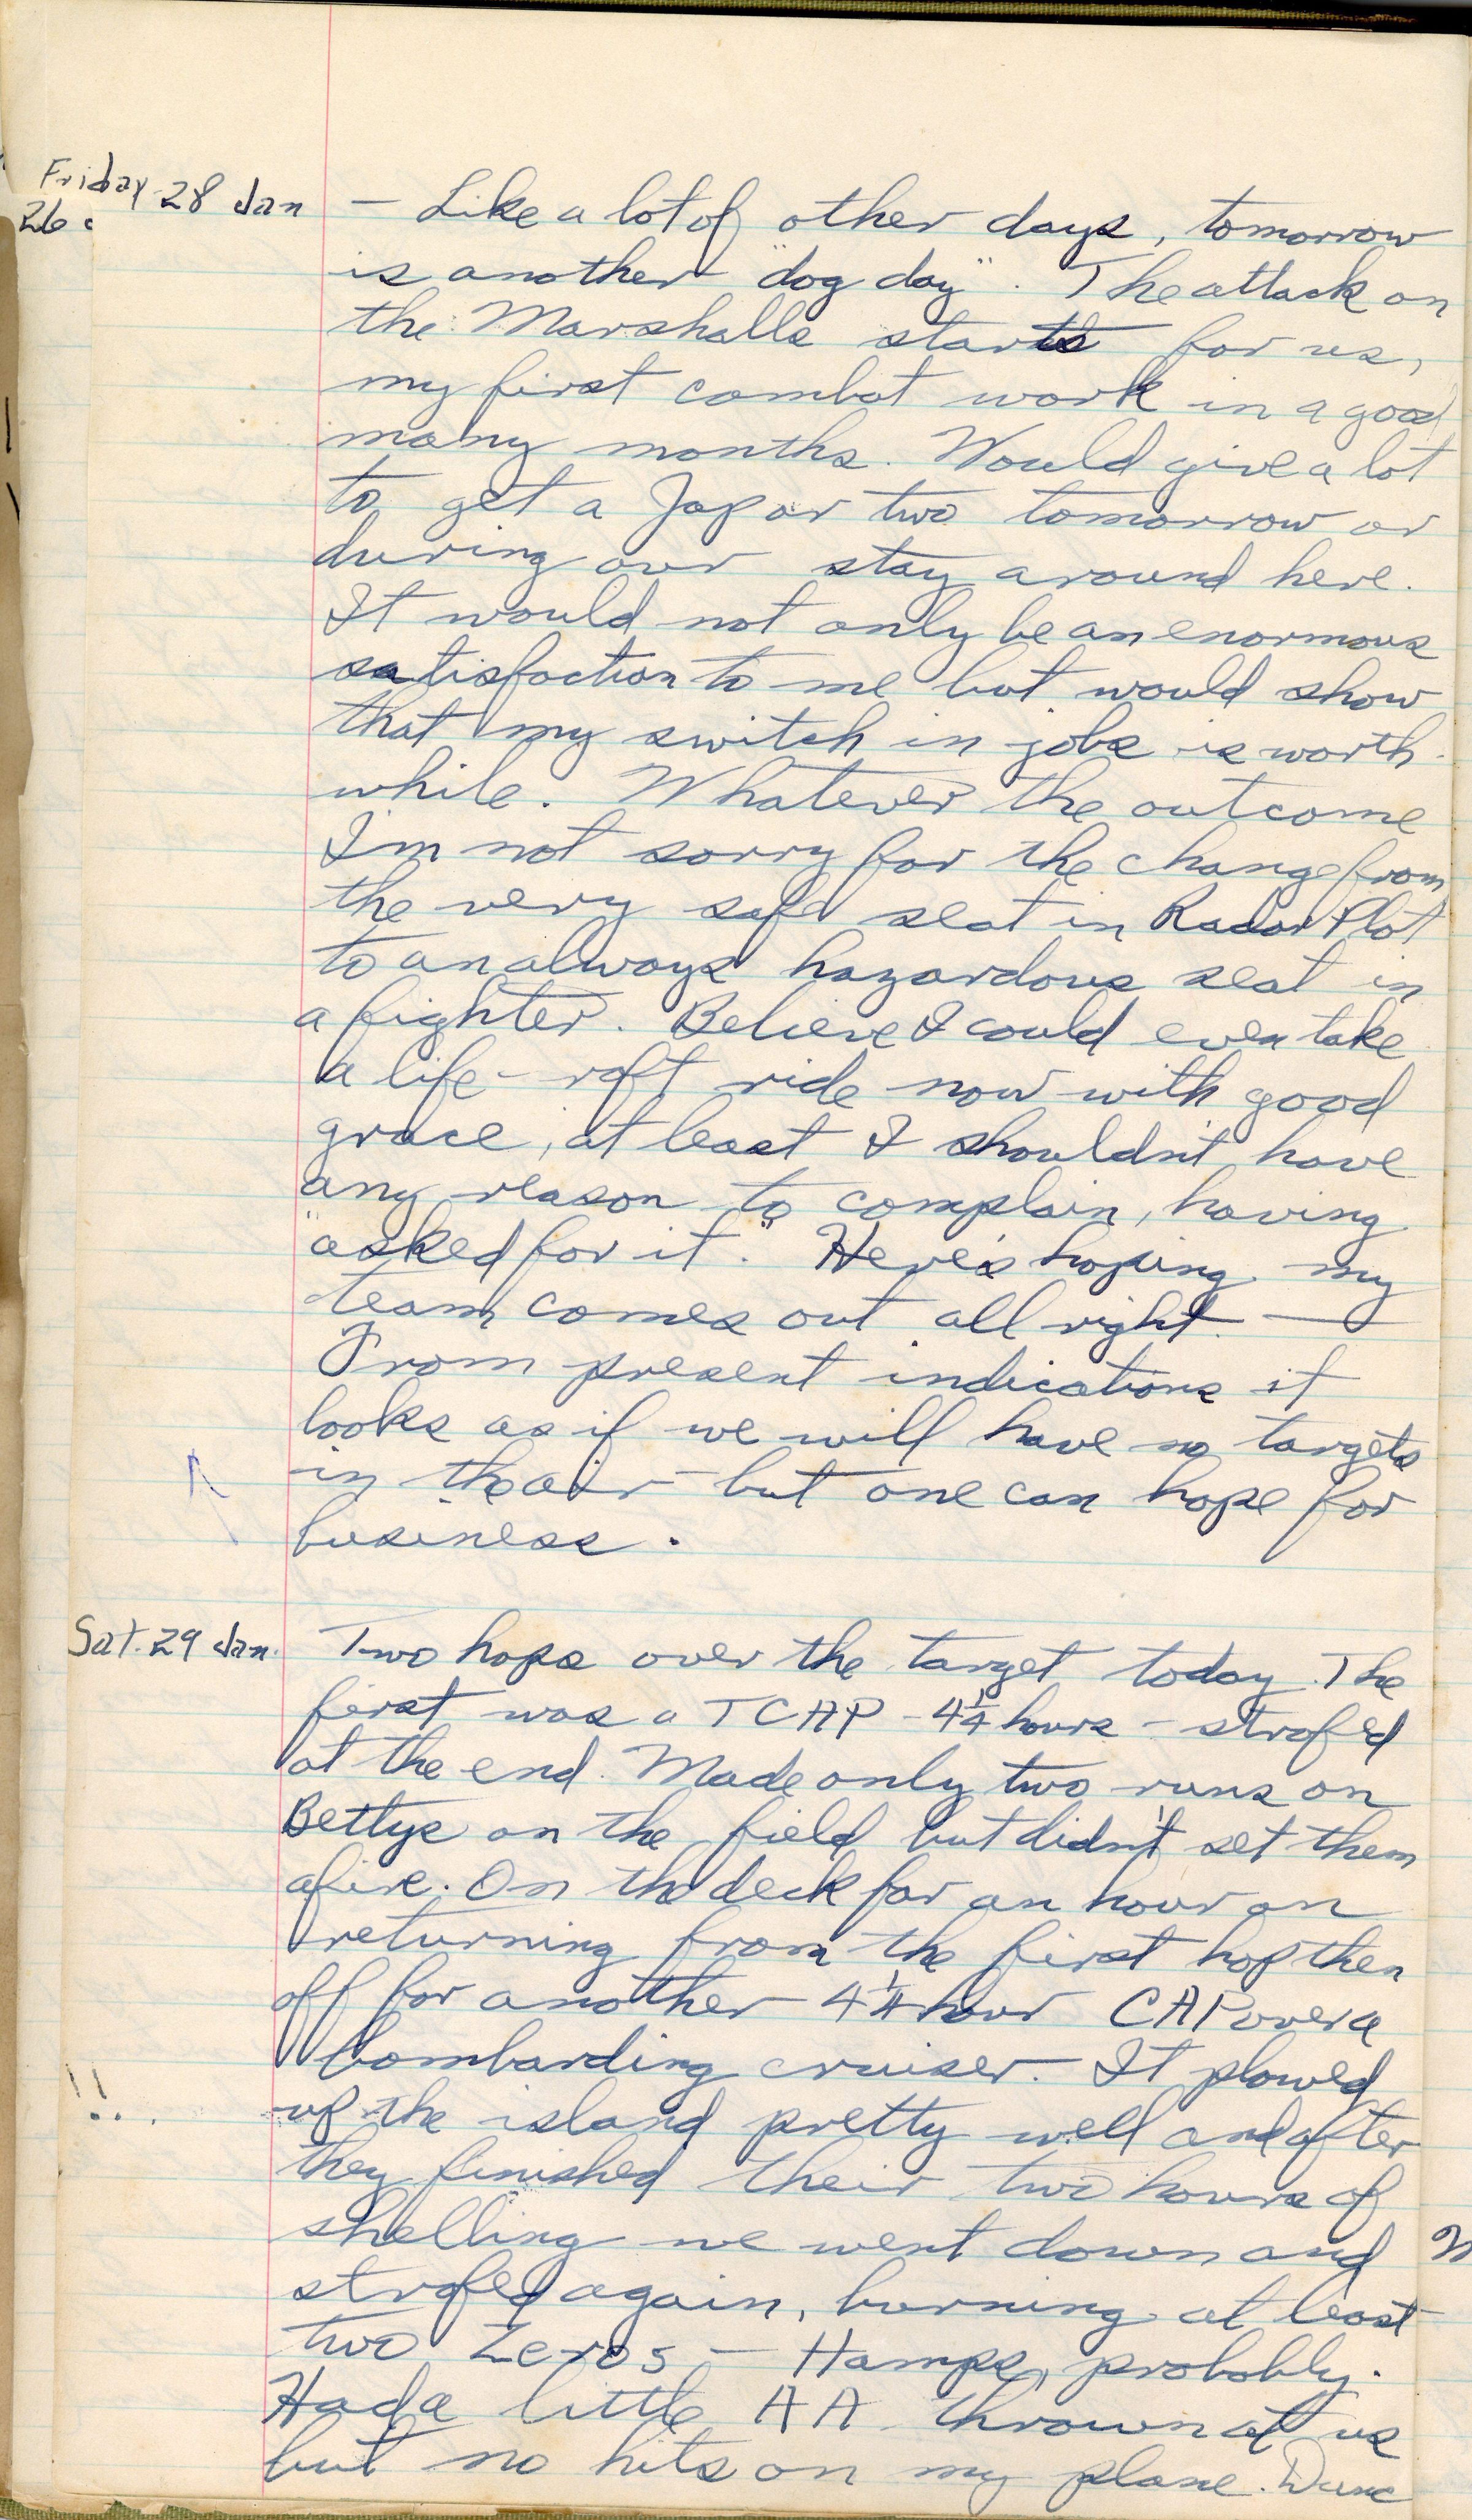 Friday 28 Jan - Like a lot of other days, tomorrow
26
is another "dog day". The attack on
the Marshalls starts for us,
my first combat work in a good
many months. Would give a lot
to get a Jap or two tomorrow or
during our stay around here.
It would not only be an enormous
satisfaction to me but would show
that my switch in jobs is worth
while. Whatever the outcome
I'm not sorry for the change from
the very safe seat in Radar Plot
to an always hazardous seat in
a fighter. Believe I could even take
a life-raft ride now with good
grace, at least I shouldn't have
any reason to complain, having
"asked for it". Here's hoping my
team comes out all right —
From present indications it
looks as if we will have no targets
in the air - but one can hope for
business.
Sat. 29 Jan. Two hops over the target today. The
first was a TCAP - 4 1/4 hours - strafed
at the end. Made only two runs on
Bettys on the field but didn't set them
afire. On the deck for an hour on
returning from the first hop then
off for another 4 1/4 hour CAP over a
bombarding cruiser. It plowed
!!. up the island pretty well and after
they finished their two hours of
shelling we went down and
strafed again, burning at least
two Zeros - Hamps, probably.
Had a little AA thrown at us
but no hits on my plane. Dunc